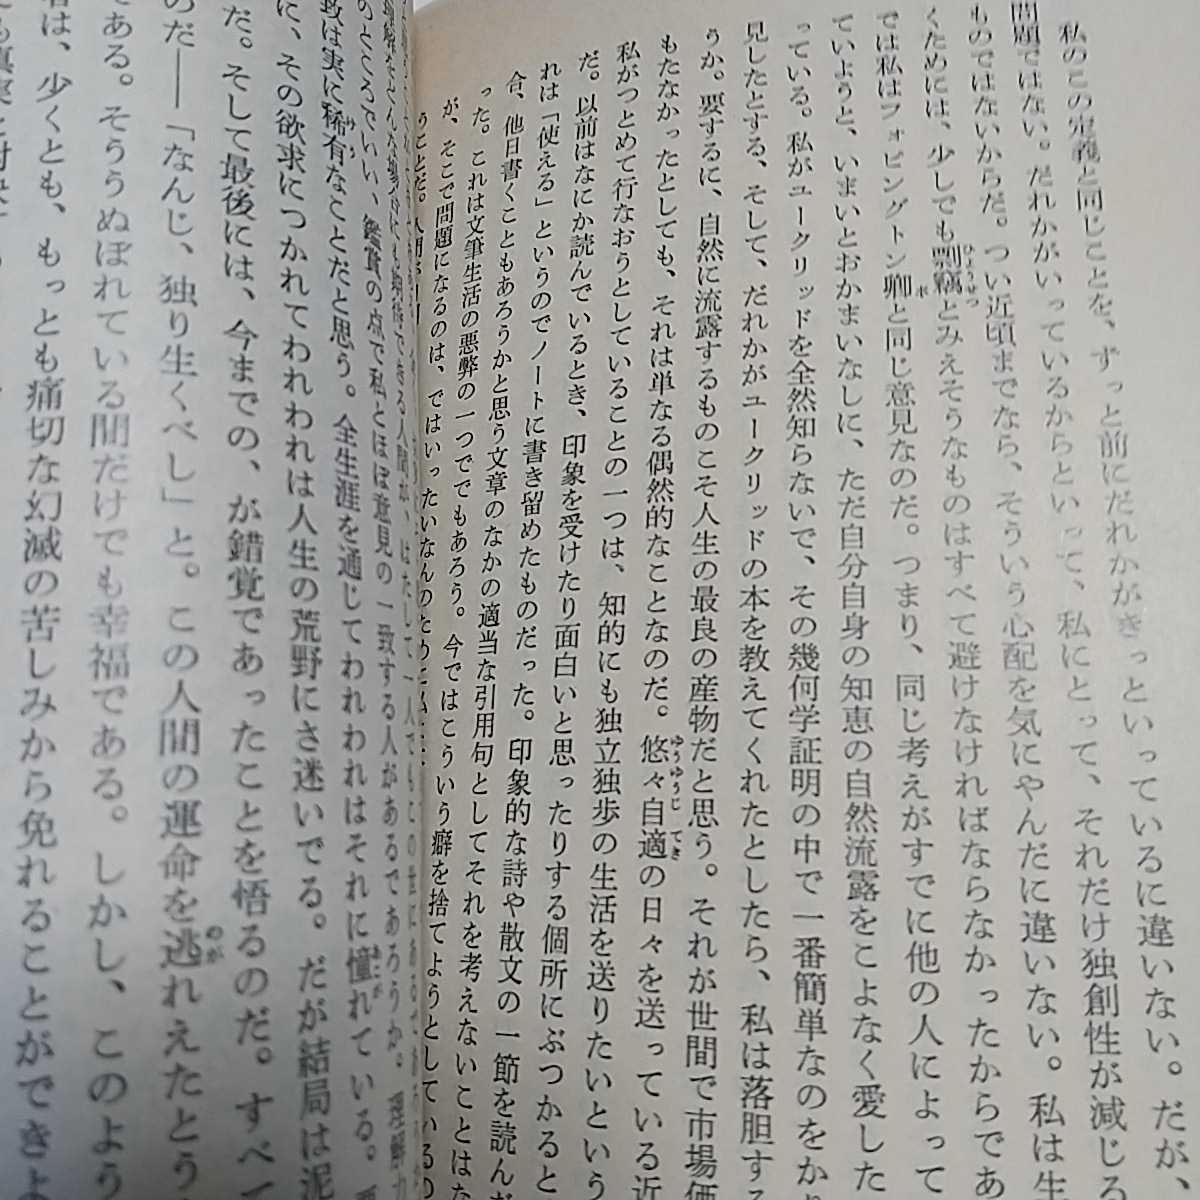 私のこの定義と同じことを、ずっと前にだれかがきっといっているに違いない。だが、
問題ではない。だれかがいっているからといって、私にとって、それだけ独創性が減じる
ものではないからだ。つい近頃までなら、そういう心配を気にやんだに違いない。私は生
くためには、少しでも剽竊とみえそうなものはすべて避けなければならなかったからであ
では私はフォピングトン卿と同じ意見なのだ。つまり、同じ考えがすでに他の人によって
ていようと、いまいとおかまいなしに、ただ自分自身の知恵の自然流露をこよなく愛した
っている。私がユークリッドを全然知らないで、その幾何学証明の中で一番簡単なのをか
見したとする、そして、だれかがユークリッドの本を教えてくれたとしたら、私は落胆す
うか。要するに、自然に流露するものこそ人生の最良の産物だと思う。それが世間で市場価
もたなかったとしても、それは単なる偶然的なことなのだ。悠々自適の日々を送っている近
私がつとめて行なおうとしていることの一つは、知的にも独立独歩の生活を送りたいという
だ。以前はなにか読んでいるとき、印象を受けたり面白いと思ったりする個所にぶつかると
れは「使える」というのでノートに書き留めたものだった。印象的な詩や散文の一節を読んだ
合、他日書くこともあろうかと思う文章のなかの適当な引用句としてそれを考えないことはな
った。これは文筆生活の悪弊の一つででもあろう。今ではこういう癖を捨てようとしている
が、そこで問題になるのは、ではいったいなんのために
うことだ。人間
のところでいい、鑑賞の点で私とほぼ意見の一致する人があるであろうか。理解力
致は実に稀有なことだと思う。全生涯を通じてわれわれはそれに憧れている。
に、その欲求につかれてわれわれは人生の荒野にさ迷いでる。だが結局は泥
だ。そして最後には、今までの、が錯覚であったことを悟るのだ。すべて
のだ――「なんじ、独り生くべし」と。この人間の運命を逃れえたとう
である。そううぬぼれている間だけでも幸福である。しかし、このよう
は、少くとも、もっとも痛切な幻滅の苦しみから免れることができよ